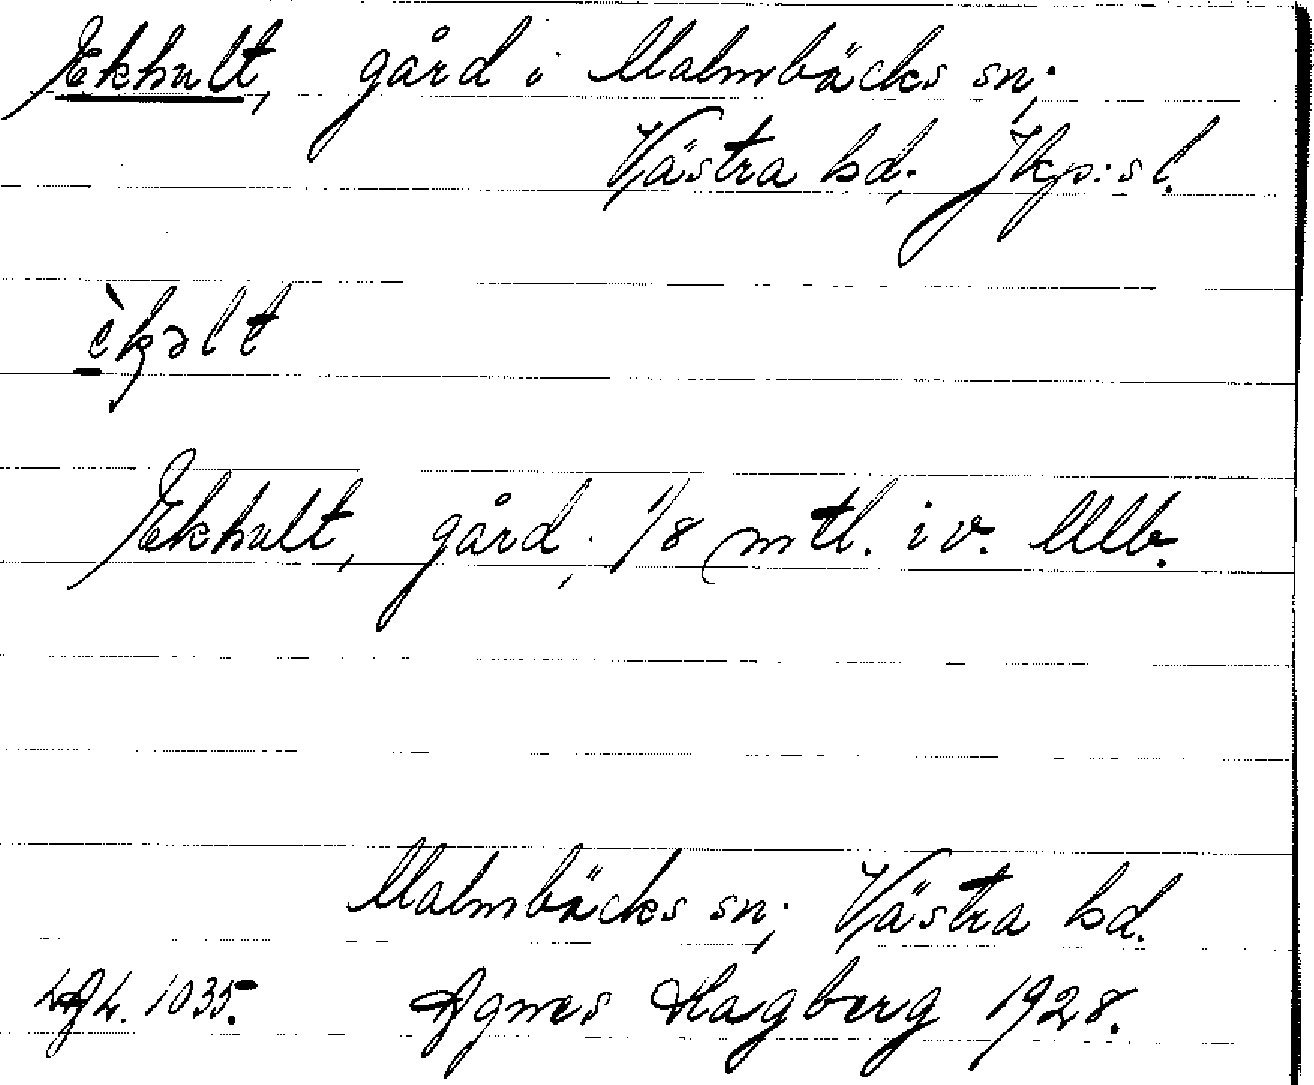 Ekhult, gård i Malmbäcks sn;
Västra hd, Jkp:s l.
è̱kəlt
Ekhult, gård, 1/8 mtl. i v. Mb.
Malmbäcks sn; Västra hd.
1035. Agnes Hagberg 1928.